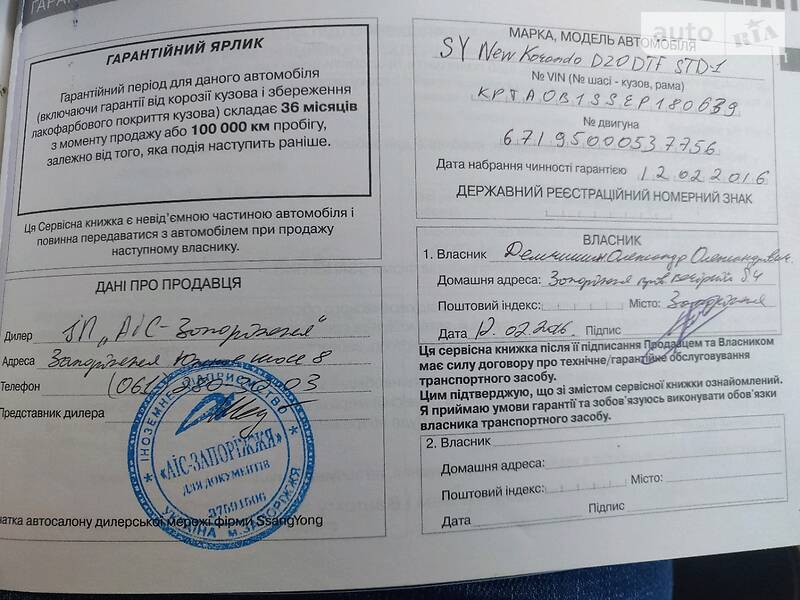 ГАРАН
ГАРАНТІЙНИЙ ЯРЛИК
Гарантійний період для даного автомобіля
(включаючи гарантії від корозії кузова і збереження
лакофарбового покриття кузова) складає 36 місяців
з моменту продажу або 100 000 км пробігу,
залежно від того, яка подія наступить раніше.
Ця Сервісна книжка є невід'ємною частиною автомобіля і
повинна передаватися з автомобілем при продажу
наступному власнику.
ДАНІ ПРО ПРОДАВЦЯ
Дилер ІП „АіС-Запоріжжя"
Адреса Запоріжжя шосе 8
Телефон (061)
Представник дилера
ІНОЗЕМНЕ ПІДПРИЄМСТВО
«АІС-ЗАПОРІЖЖЯ»
ДЛЯ ДОКУМЕНТІВ
37601506
УКРАЇНА м. ЗАПОРІЖЖЯ
чатка автосалону дилерської мережі фірми SsangYong
auto RIA
МАРКА, МОДЕЛЬ АВТОМОБІЛЯ
SY New Korando D20DTF STD-1
№ VIN (№ шасі - кузов, рама)
KPTA0B1SSEP180639
№ двигуна
67195000537756
Дата набрання чинності гарантією 12.02.2016
ДЕРЖАВНИЙ РЕЄСТРАЦІЙНИЙ НОМЕРНИЙ ЗНАК
ВЛАСНИК
1. Власник Олександр Олександрович
Домашня адреса: Запоріжжя
Поштовий індекс: Місто: Запоріжжя
Дата 12.02.2016 Підпис
Ця сервісна книжка після її підписання Продавцем та Власником
має силу договору про технічне/гарантійне обслуговування
транспортного засобу.
Цим підтверджую, що зі змістом сервісної книжки ознайомлений.
Я приймаю умови гарантії та зобов'язуюсь виконувати обов'язки
власника транспортного засобу.
2. Власник
Домашня адреса:
Поштовий індекс: Місто:
Дата Підпис